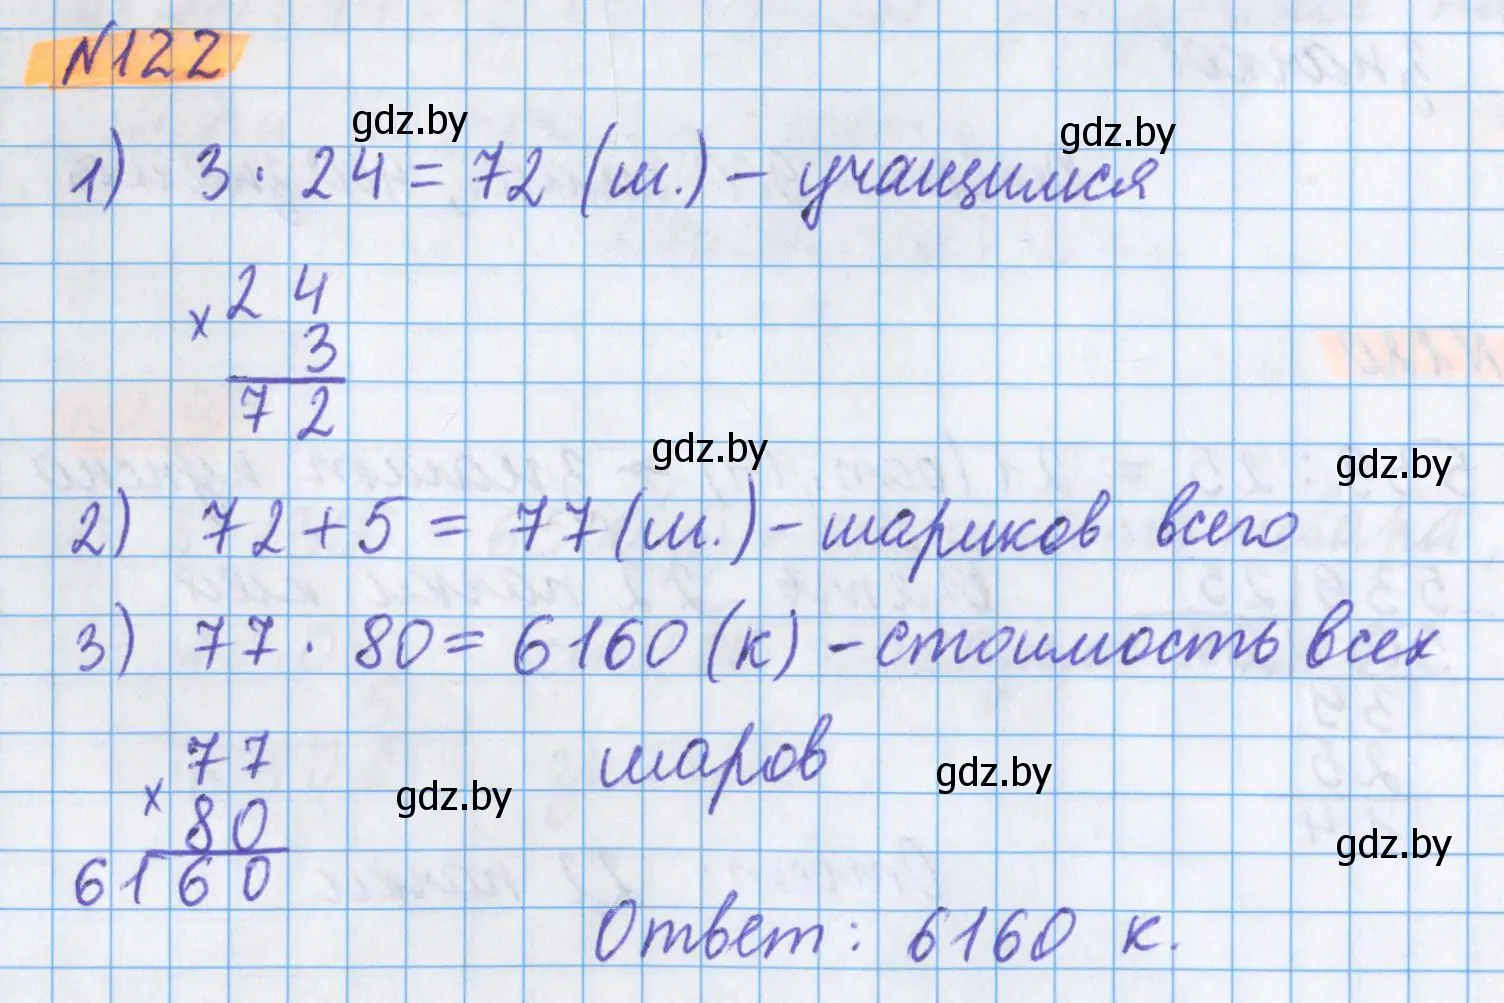 N122
gdz.by
gdz.by
1) 3 · 24 = 72 (ш.) – учащимся
24
× 3
72
gdz.by
gdz.by
2) 72 + 5 = 77 (ш.) – шариков всего
3) 77 · 80 = 6160 (к) – стоимость всех
шаров
77
× 80
6160
gdz.by
gdz.by
gdz.by
Ответ: 6160 к.